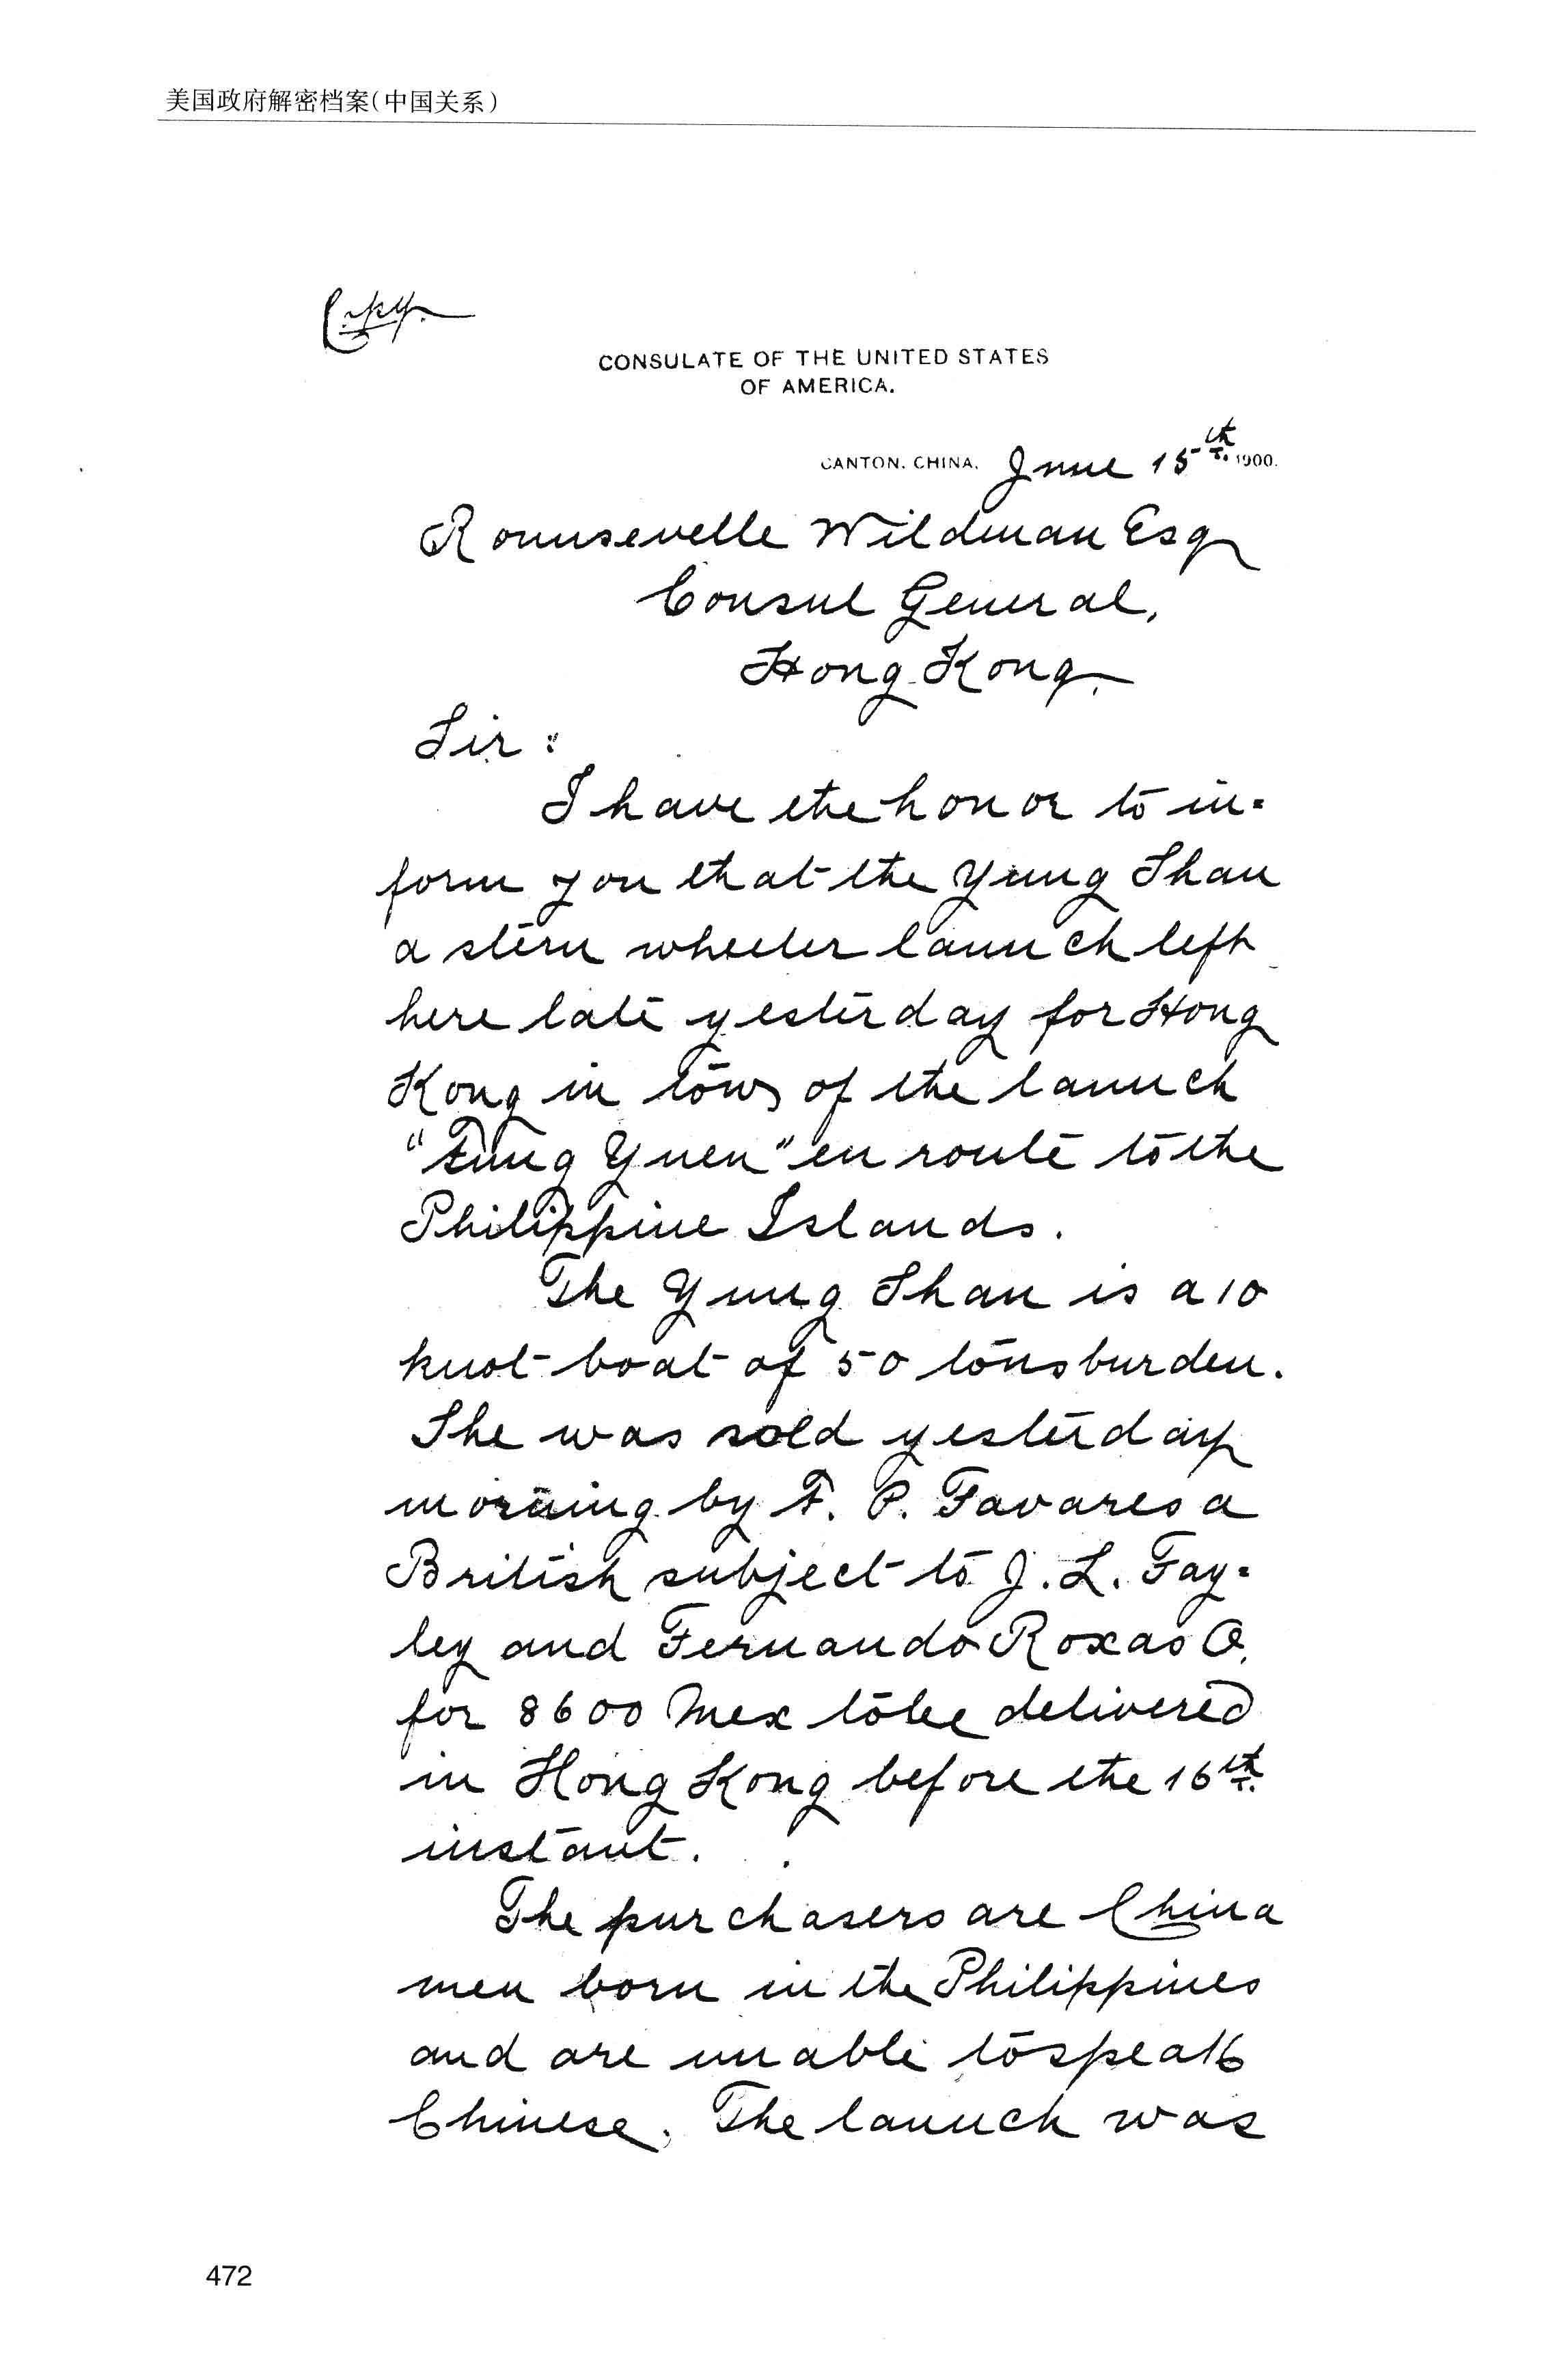 美国政府解密档案(中国关系)
Copy.
CONSULATE OF THE UNITED STATES
OF AMERICA.
CANTON. CHINA. June 15th 1900.
Rounsevelle Wildman Esq
Consul General,
Hong Kong.
Sir:
I have the honor to in=
form you that the Yung Shan
a stern wheeler launch left
here late yesterday for Hong
Kong in tow of the launch
"Fung Yuen" en route to the
Philippine Islands.
The Yung Shan is a 10
knot boat of 50 tons burden.
She was sold yesterday
morning by F. P. Tavares a
British subject to J. L. Tay=
ley and Fernando Roxas O.
for 8600 Mex to be delivered
in Hong Kong before the 16th
instant.
The purchasers are China
men born in the Philippines
and are unable to speak
Chinese. The launch was
472